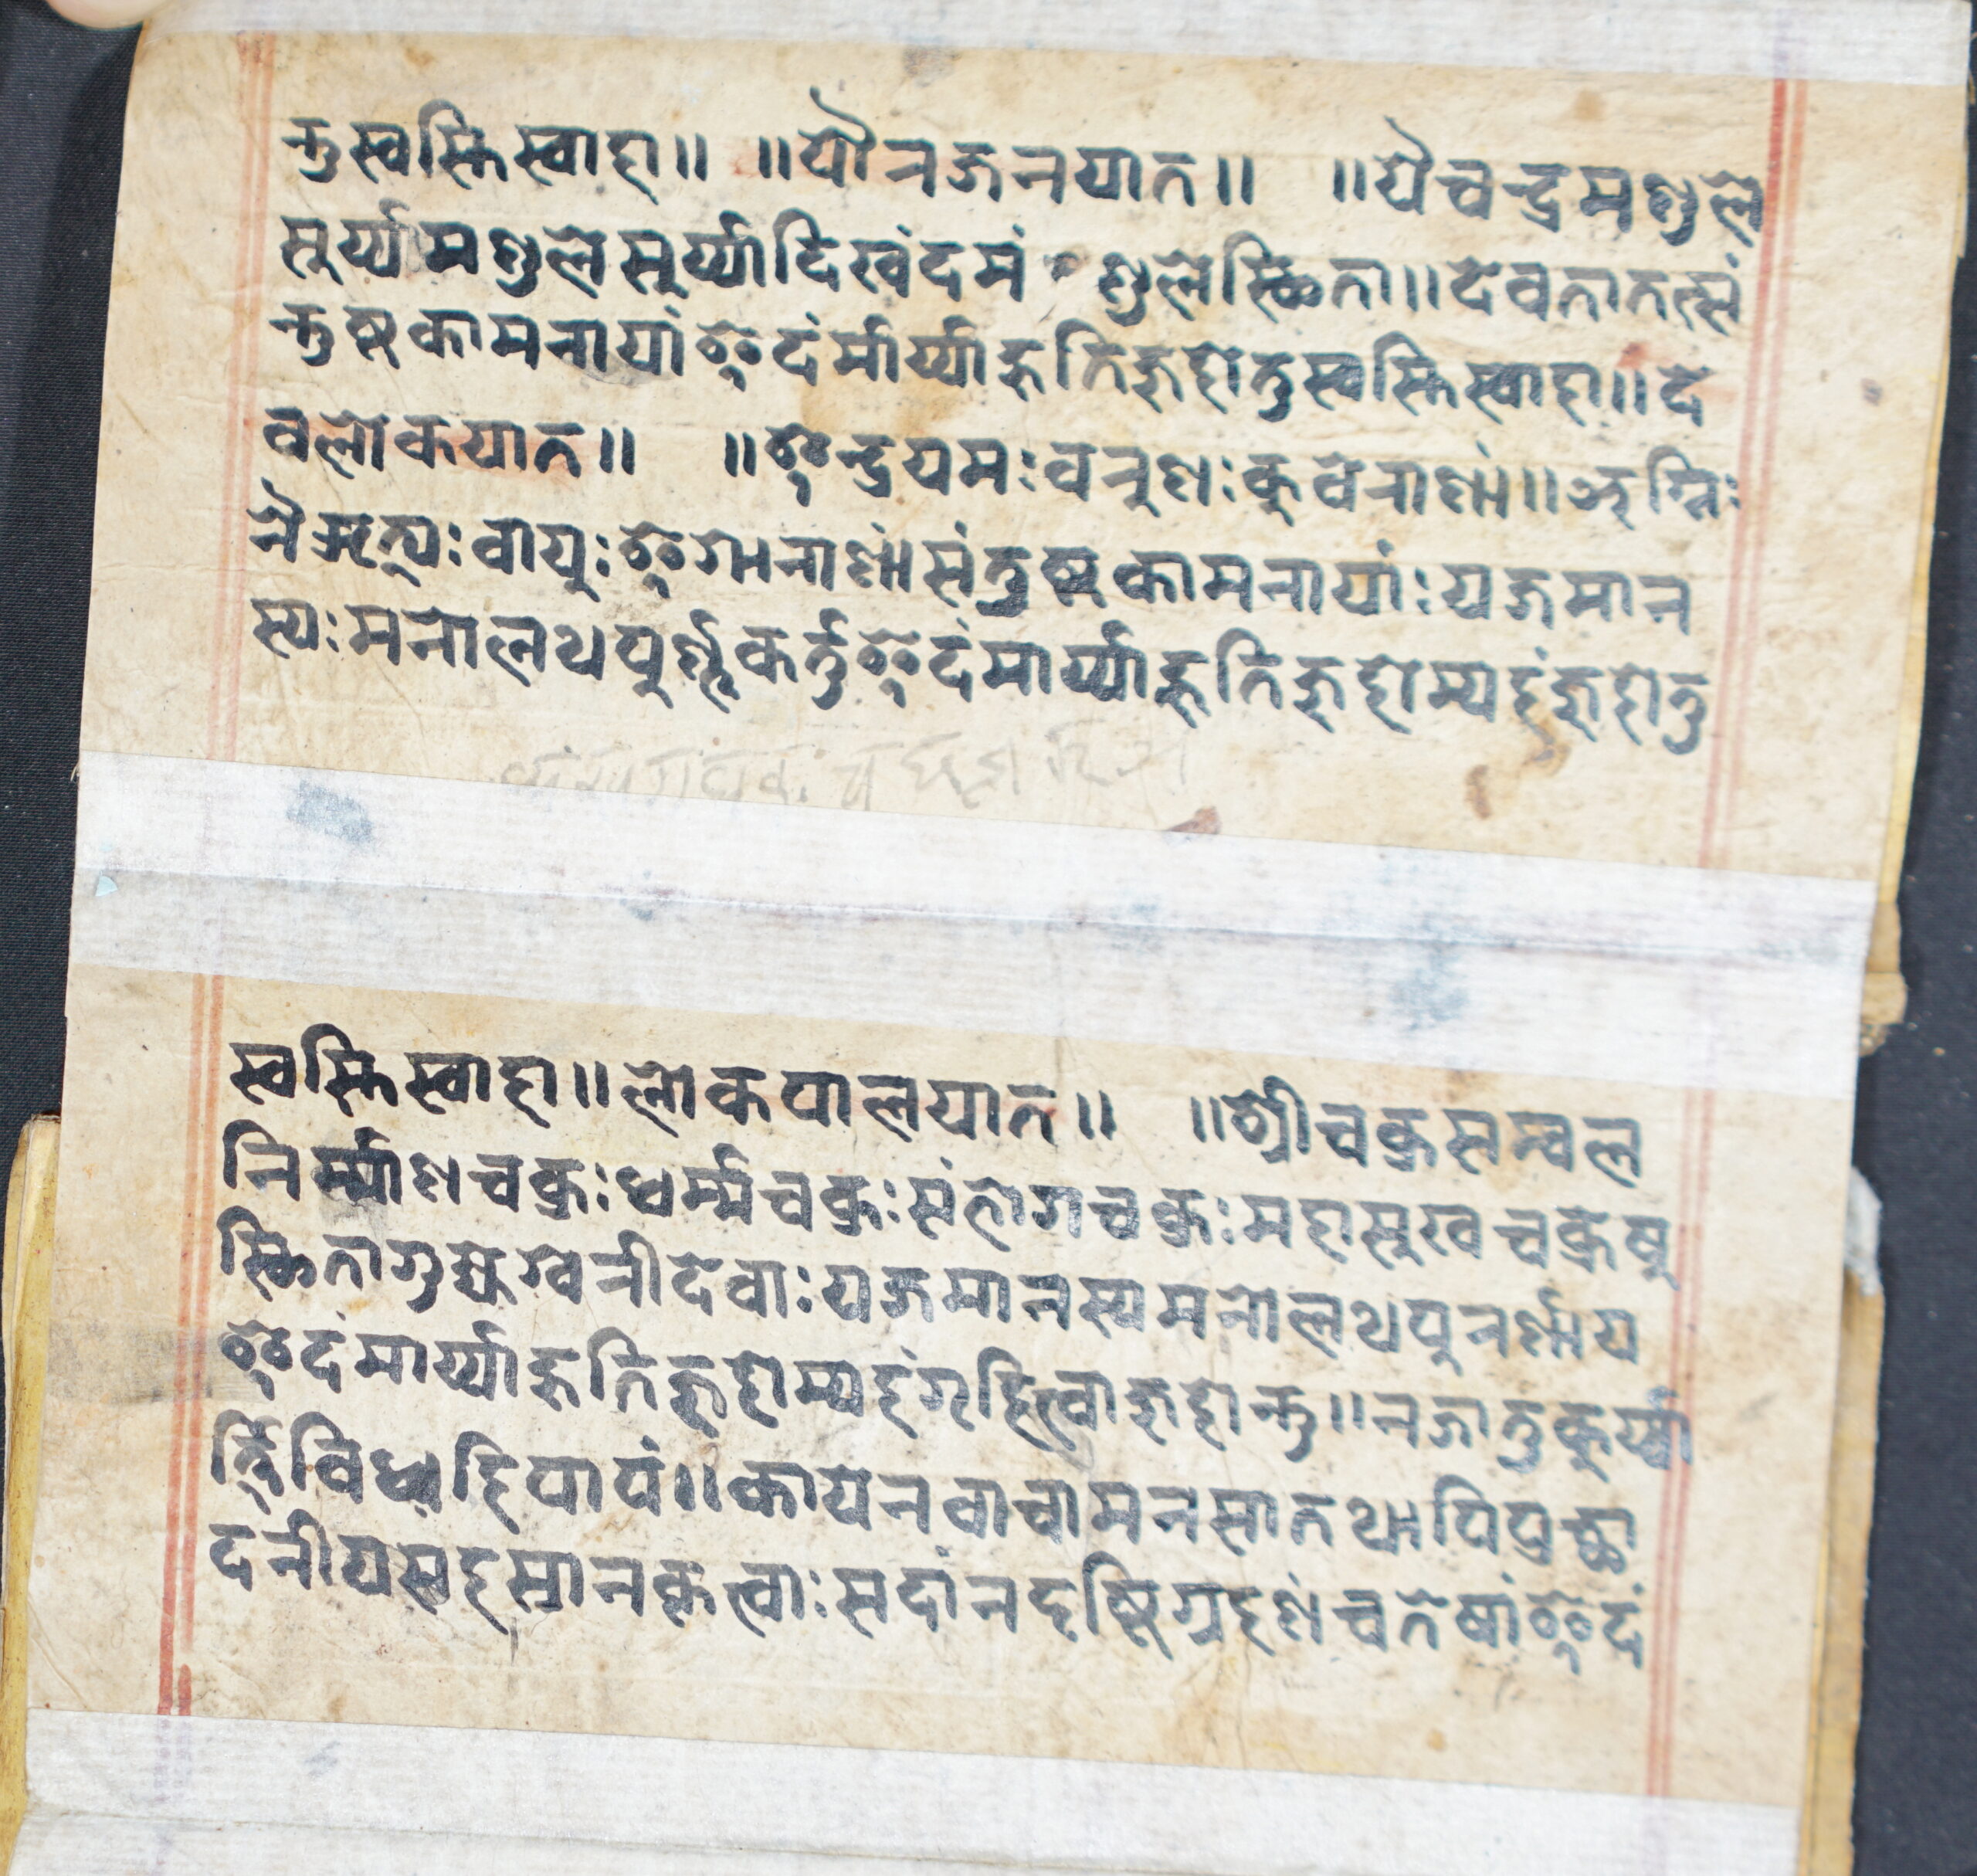 न्तु स्वस्ति स्वाहा॥ ॥पौनजनयात॥ ॥ये चन्द्रमण्डले
सुर्य्यमण्डले सुर्य्यादिखंदमं ण्डलेस्थिता॥देवतातत्सं
न्तुष्टकामनायां इदंर्मार्य्याहुतिजुहोतु स्वस्ति स्वाहा॥दे
वलोकयात॥ ॥इन्द्रयमःवनुणःकुवेनाणां॥अग्निः
नैऋत्यःवायुःइशानाणां संतुष्टकामनायांःयजमान
स्यःमनोलथपुर्ण्णकर्तु इदंमार्य्याहुतिजुहोम्यहंजुहोतु
स्वस्ति स्वाहा॥लोकपालयात॥ ॥श्रीचक्रसम्वल
निर्म्माणचक्रःधर्म्मचक्रःसंभोगचक्रःमहासुखचक्रेषु
स्थितागुह्येश्वनीदेवाःयजमानस्यमनोलथपुनर्णाय
इदंमार्य्याहुतिजुहोम्यहंगृहित्वाजुहोन्तु॥नजातुकुर्य्या
र्त्तिविधाहिपापं॥कायेनवाचामनसातथापिप्रच्छा
दनीयसहस्रानकृत्वाःसदांनदृष्टिग्रहणंचतेषांइदं